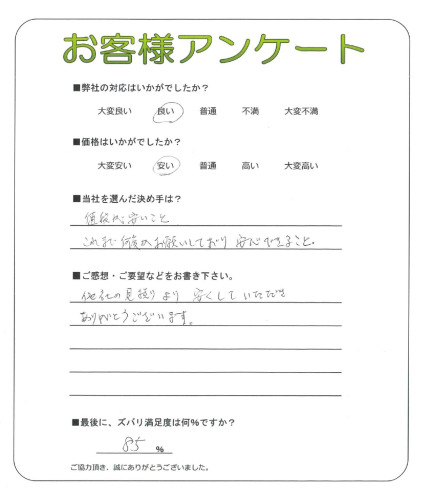 お客様アンケート
■弊社の対応はいかがでしたか?
大変良い 良い 普通 不満 大変不満
■価格はいかがでしたか?
大変安い 安い 普通 高い 大変高い
■当社を選んだ決め手は?
値段が安いこと
これまで何度かお願いしており安心できること。
■ご感想・ご要望などをお書き下さい。
他社の見積りより安くしていただき
ありがとうございます。
■最後に、ズバリ満足度は何%ですか?
85 %
ご協力頂き、誠にありがとうございました。